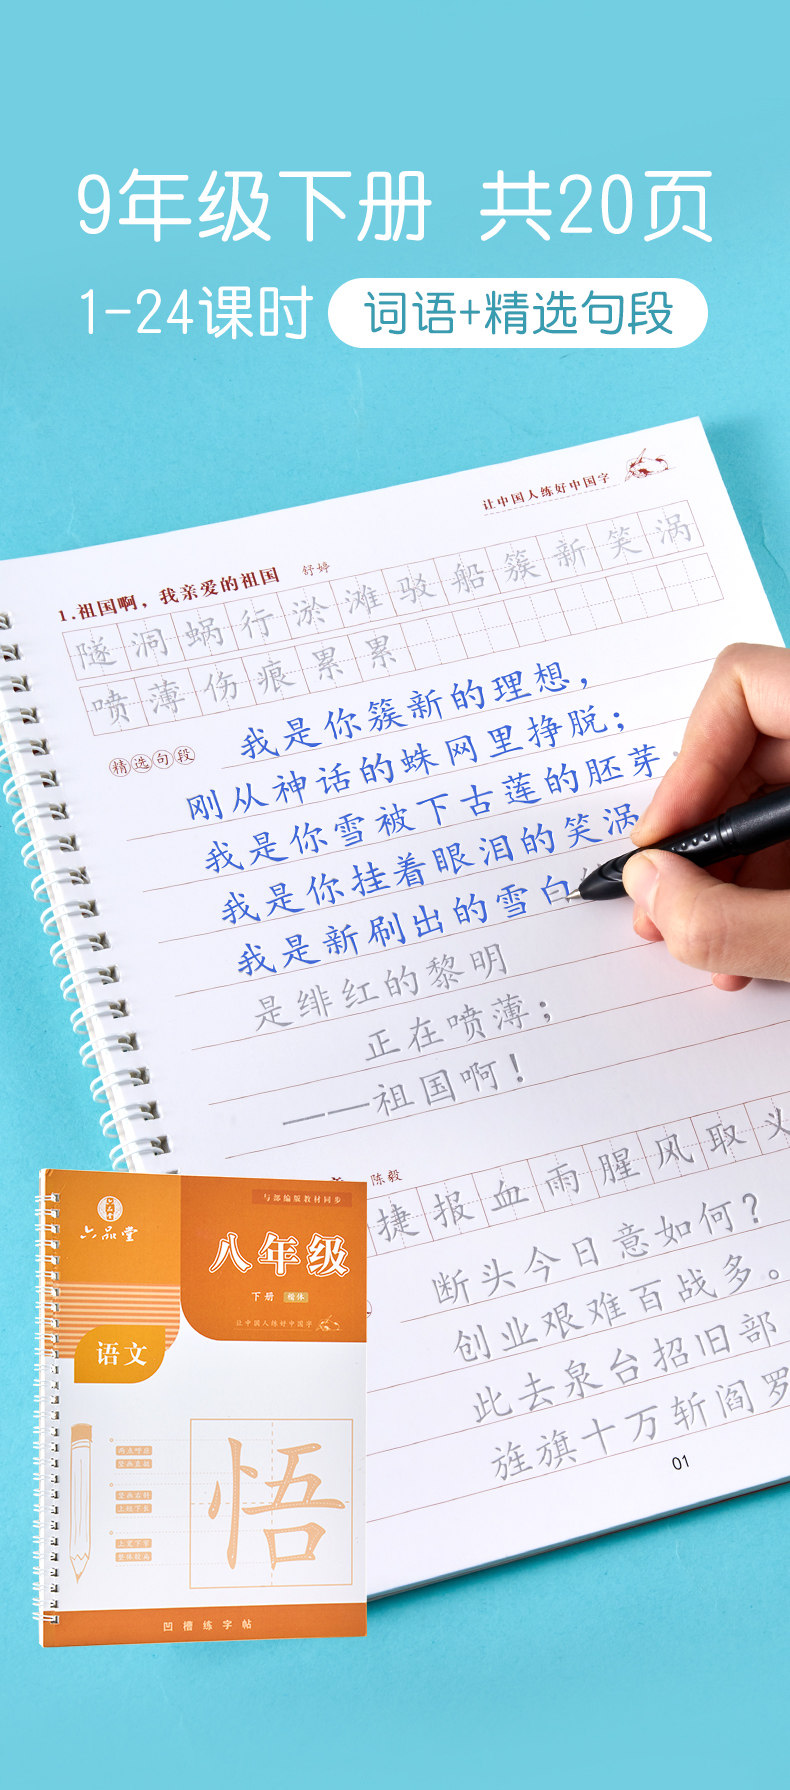 9年级下册 共20页
1-24课时 词语+精选句段
让中国人练好中国字
1.祖国啊，我亲爱的祖国 舒婷
隧洞蜗行淤滩驳船簇新笑涡
喷薄伤痕累累
精选句段
我是你簇新的理想，
刚从神话的蛛网里挣脱；
我是你雪被下古莲的胚芽
我是你挂着眼泪的笑涡
我是新刷出的雪白
是绯红的黎明
正在喷薄；
——祖国啊！
陈毅
捷报血雨腥风取义
断头今日意如何？
创业艰难百战多。
此去泉台招旧部
旌旗十万斩阎罗
01
与部编版教材同步
六品堂
八年级
下册 楷体
让中国人练好中国字
语文
悟
凹槽练字帖